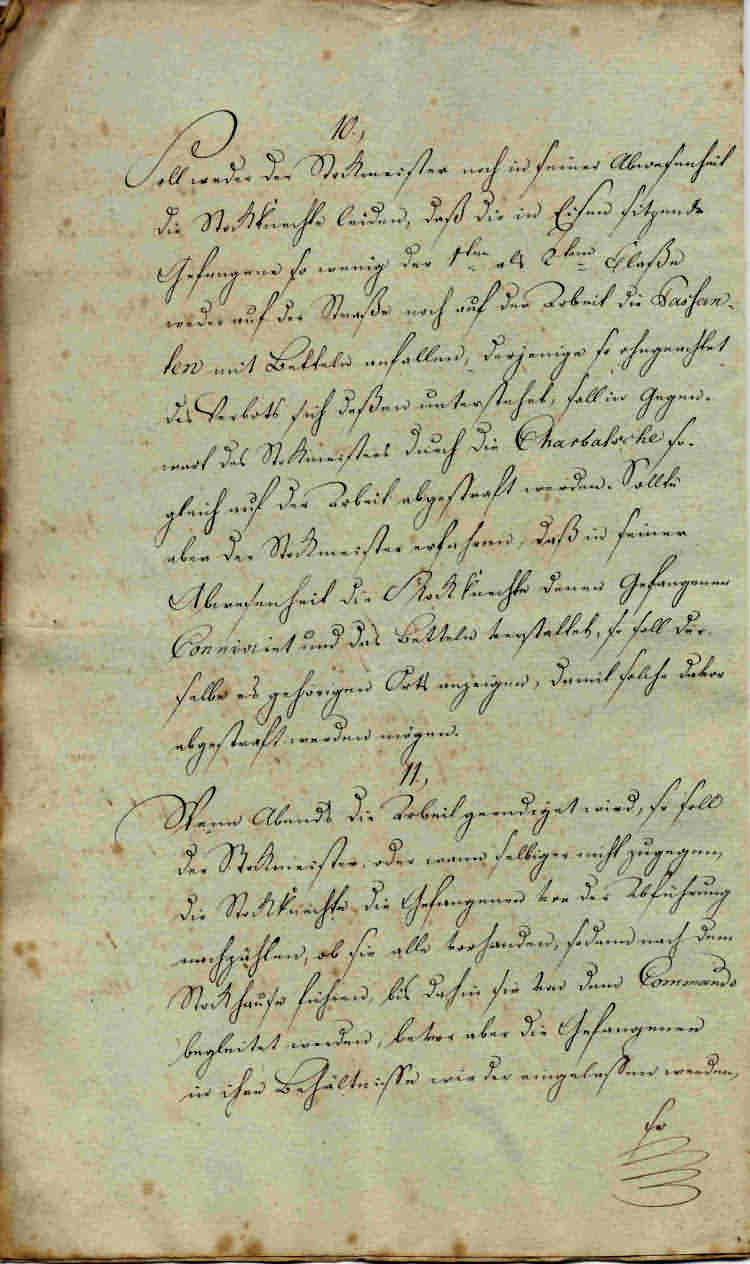 10.,
Soll weder der Stockmeister noch in seiner Abwesenheit
die Stockknechte leiden, daß die in Eisen sitzende
Gefangene so wenig der 1ten als 2ten Claße
weder auf der Straße noch auf der Arbeit die Passan-
ten mit Betteln anfallen, derjenige so ohngeachtet
des Verbots sich deßen unterstehet, soll in Gegen-
wart des Stockmeisters durch die Charbatsche so-
gleich auf der Arbeit abgestraft werden. Sollte
aber der Stockmeister erfahren, daß in seiner
Abwesenheit die Stockknechte denen Gefangenen
Conniviret und das Betteln verstattet, so soll der-
selbe es gehörigen Orts anzeigen, damit solche davor
abgestraft werden mögen.
11.,
Wenn Abends die Arbeit geendiget wird, so soll
der Stockmeister oder wann selbiger nicht zugegen,
die Stockknechte die Gefangenen vor der Abführung
nachzählen, ob sie alle vorhanden, sodann nach dem
Stockhause führen, bis dahin sie von dem Commando
begleitet werden, bevor aber die Gefangenen
in ihre Behältnisse wieder eingelassen werden,
so